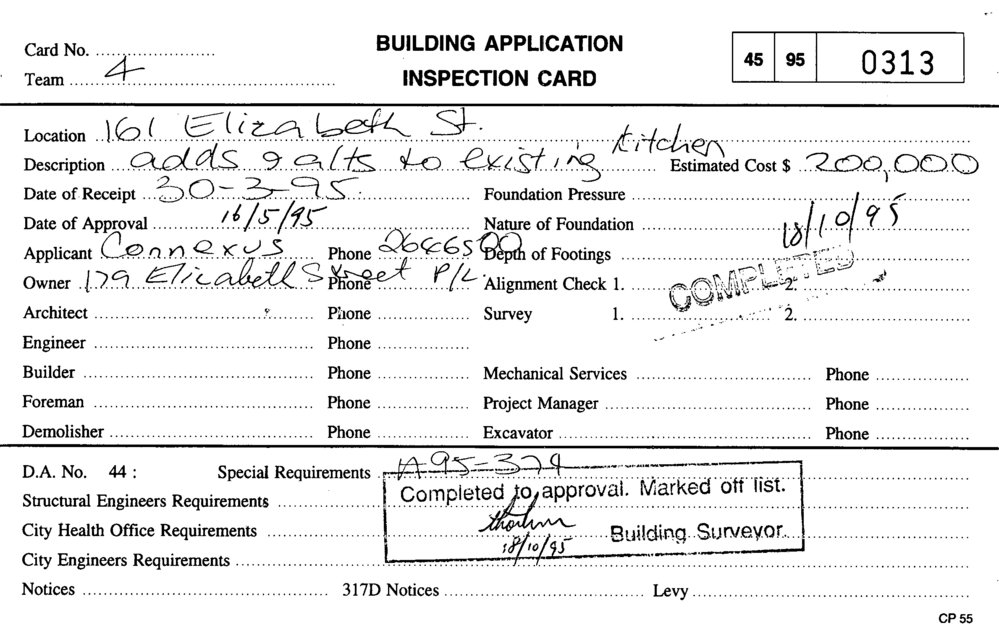 Card No. BUILDING APPLICATION 45 95 0313
Team 4 INSPECTION CARD
Location 161 Elizabeth St.
Description adds & alts to existing kitchen Estimated Cost $ 200,000
Date of Receipt 30-3-95. Foundation Pressure
Date of Approval 16/5/95 Nature of Foundation 18/10/95
Applicant Connexus Phone 2646500 Depth of Footings
Owner 179 Elizabeth Street P/L Phone Alignment Check 1. COMPLETED 2.
Architect Phone Survey 1. 2.
Engineer Phone
Builder Phone Mechanical Services Phone
Foreman Phone Project Manager Phone
Demolisher Phone Excavator Phone
D.A. No. 44 : Special Requirements A95-379
Structural Engineers Requirements Completed to approval. Marked off list.
City Health Office Requirements Building Surveyor.
18/10/95
City Engineers Requirements
Notices 317D Notices Levy
CP 55